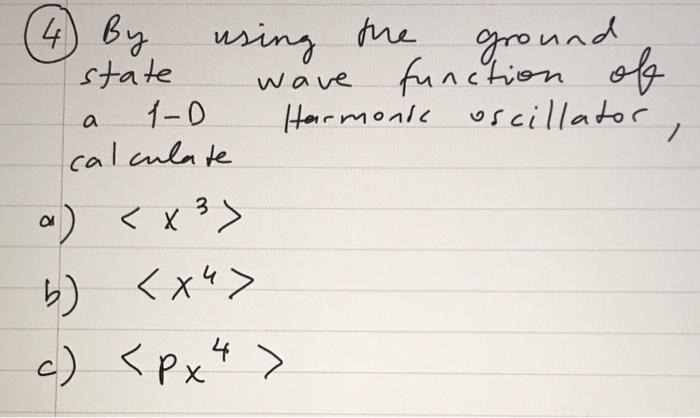 ④ By using the ground
state wave function of
a 1-D Harmonic oscillator,
calculate
a) < x³ >
b) < x⁴ >
c) < px⁴ >